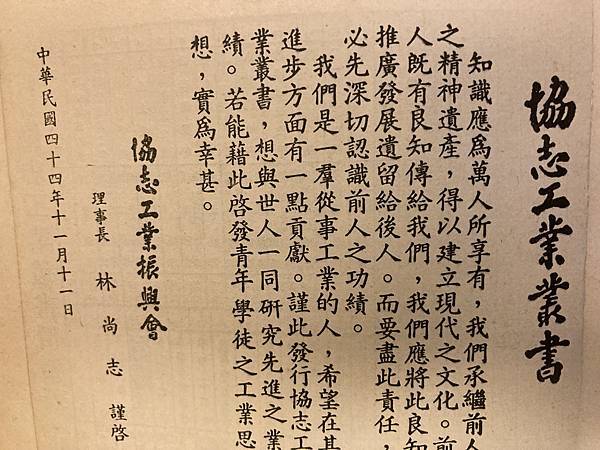 協志工業叢書
知識應爲萬人所享有，我們承繼前人
之精神遺產，得以建立現代之文化。前
人既有良知傳給我們，我們應將此良知
推廣發展遺留給後人。而要盡此責任，
必先深切認識前人之功績。
我們是一羣從事工業的人，希望在其
進步方面有一點貢獻。謹此發行協志工
業叢書，想與世人一同研究先進之業
績。若能藉此啓發青年學徒之工業思
想，實爲幸甚。
協志工業振興會
理事長 林尚志 謹啓
中華民國四十四年十一月十一日